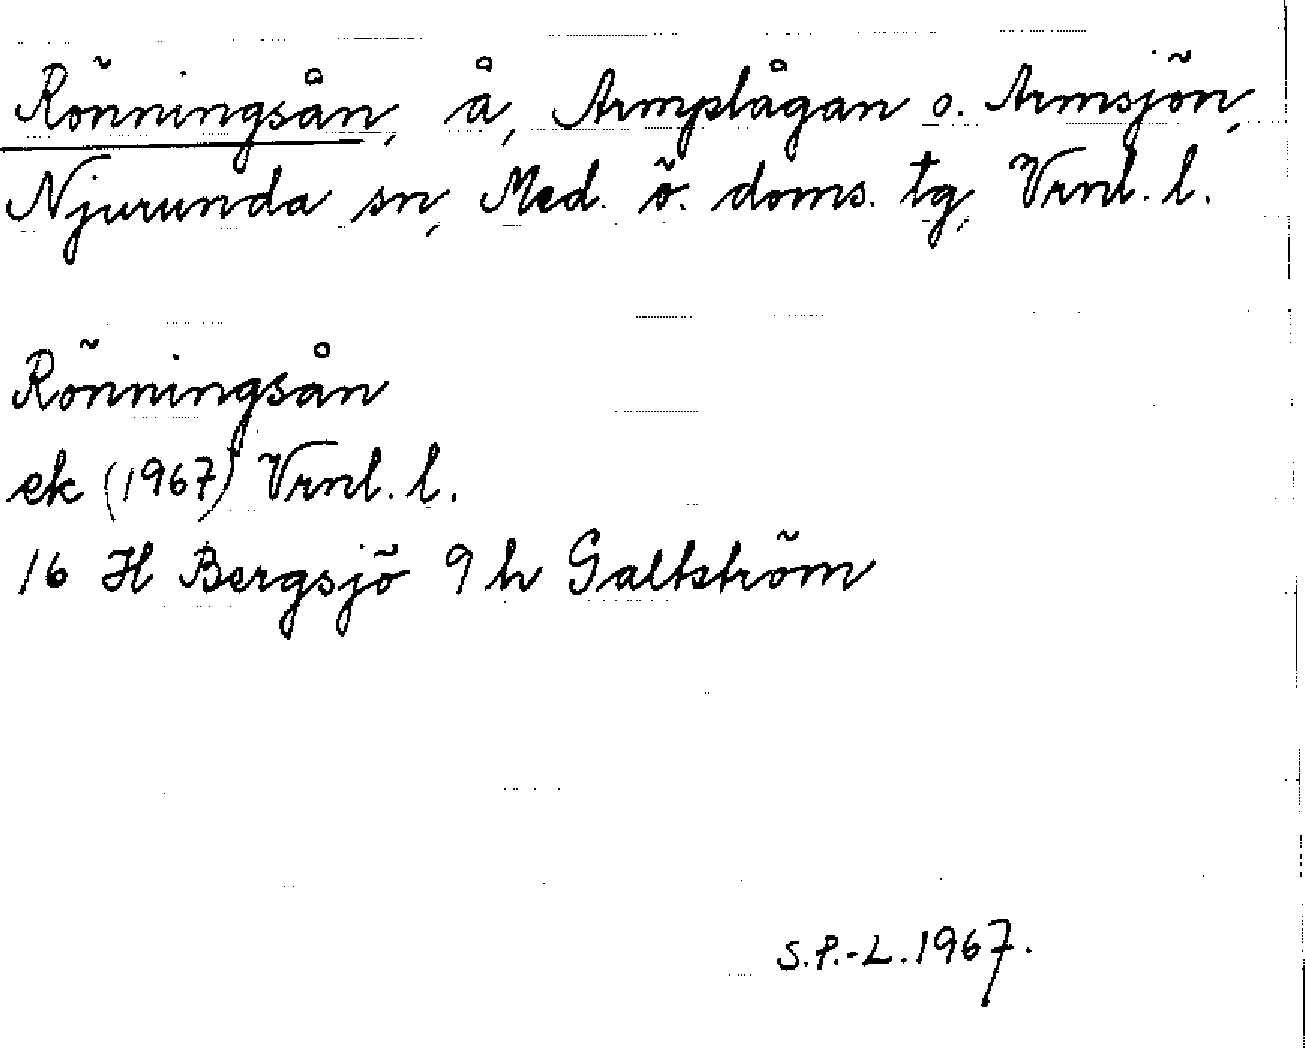 Rönningsån, å, Armplågan o. Armsjön,
Njurunda sn, Med. ö. doms. tg, Vrnl. l.
Rönningsån
ek (1967) Vrnl. l.
16 H Bergsjö 9 h Galtström
S.P.-L. 1967.